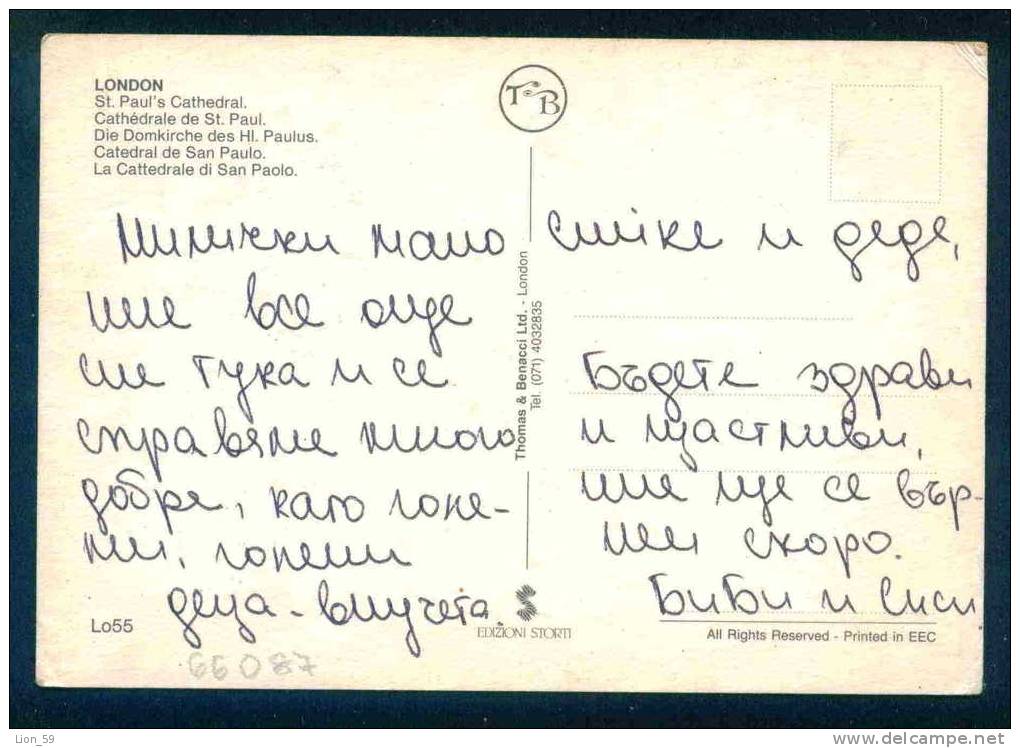 LONDON
St. Paul's Cathedral.
Cathédrale de St. Paul.
Die Domkirche des Hl. Paulus.
Catedral de San Paulo.
La Cattedrale di San Paolo.
TB
Милички мамо Сийке и деде,
ние все още
сме тука и се
справяме много
добре, като голе-
ми, големи
деца-внучета.
Бъдете здрави
и щастливи,
ние ще се вър-
нем скоро.
Биби и Сиси
Thomas & Benacci Ltd. - London
Tel. (071) 4032835
Lo55
EDIZIONI STORTI
All Rights Reserved - Printed in EEC
66087
Lion_59
www.delcampe.net